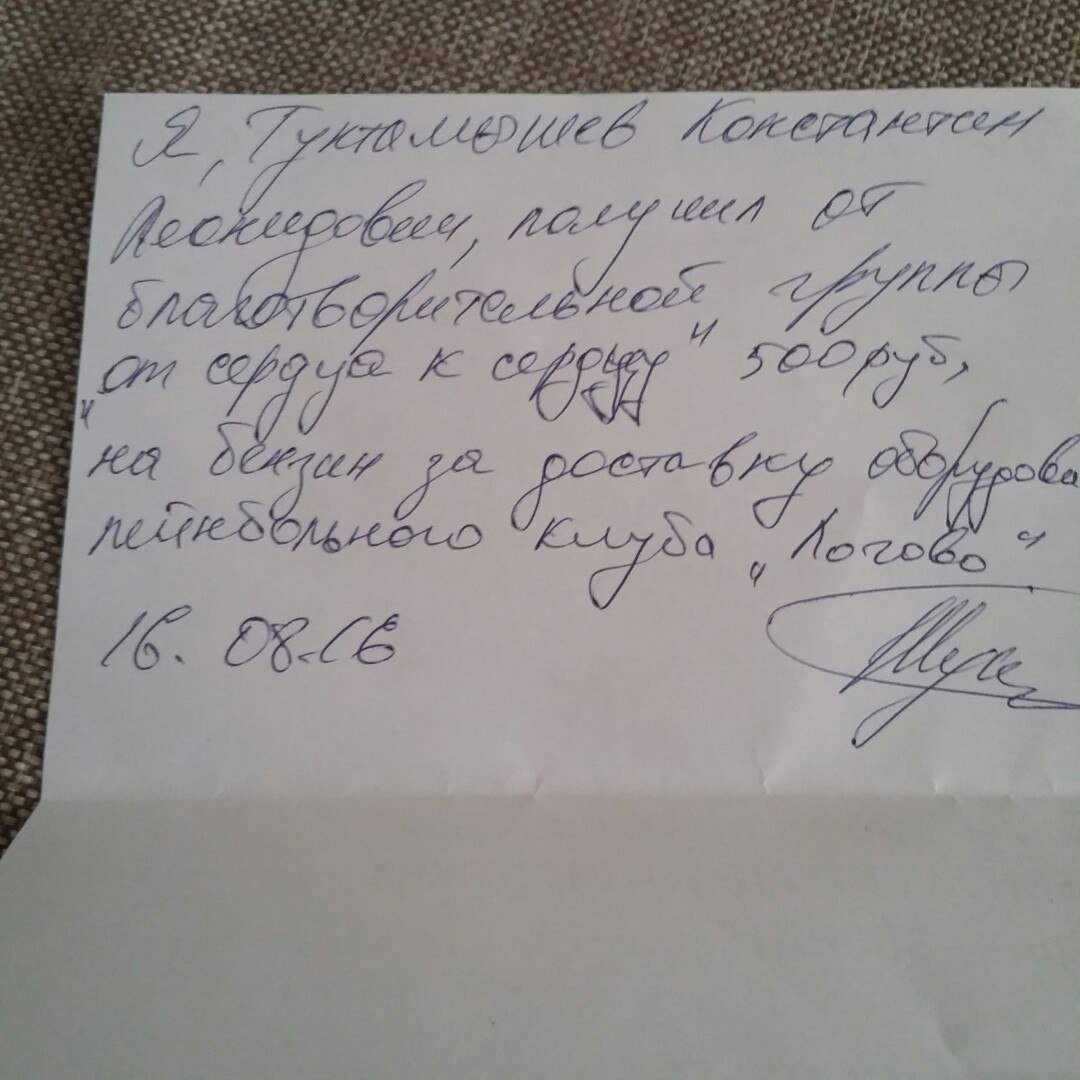 Я, Туктамышев Константин
Леонидович, получил от
благотворительной группы
"от сердца к сердцу" 500 руб,
на бензин за доставку оборудова
пейнбольного клуба "Логово"
16. 08.16